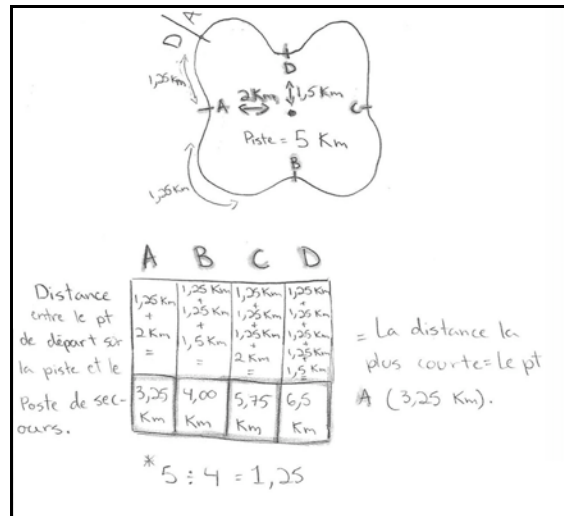 D A
1,25 Km
D
A 2 Km 1,5 Km C
Piste = 5 Km
B
1,25 Km
A B C D
Distance entre le pt de départ sur la piste et le Poste de sec-ours.
1,25 Km + 2 Km =
1,25 Km + 1,25 Km + 1,5 Km =
1,25 Km + 1,25 Km + 1,25 Km + 2 Km =
1,25 Km + 1,25 Km + 1,25 Km + 1,25 Km + 1,5 Km =
3,25 Km
4,00 Km
5,75 Km
6,5 Km
= La distance la
plus courte = Le pt
A (3,25 Km).
* 5 ÷ 4 = 1,25